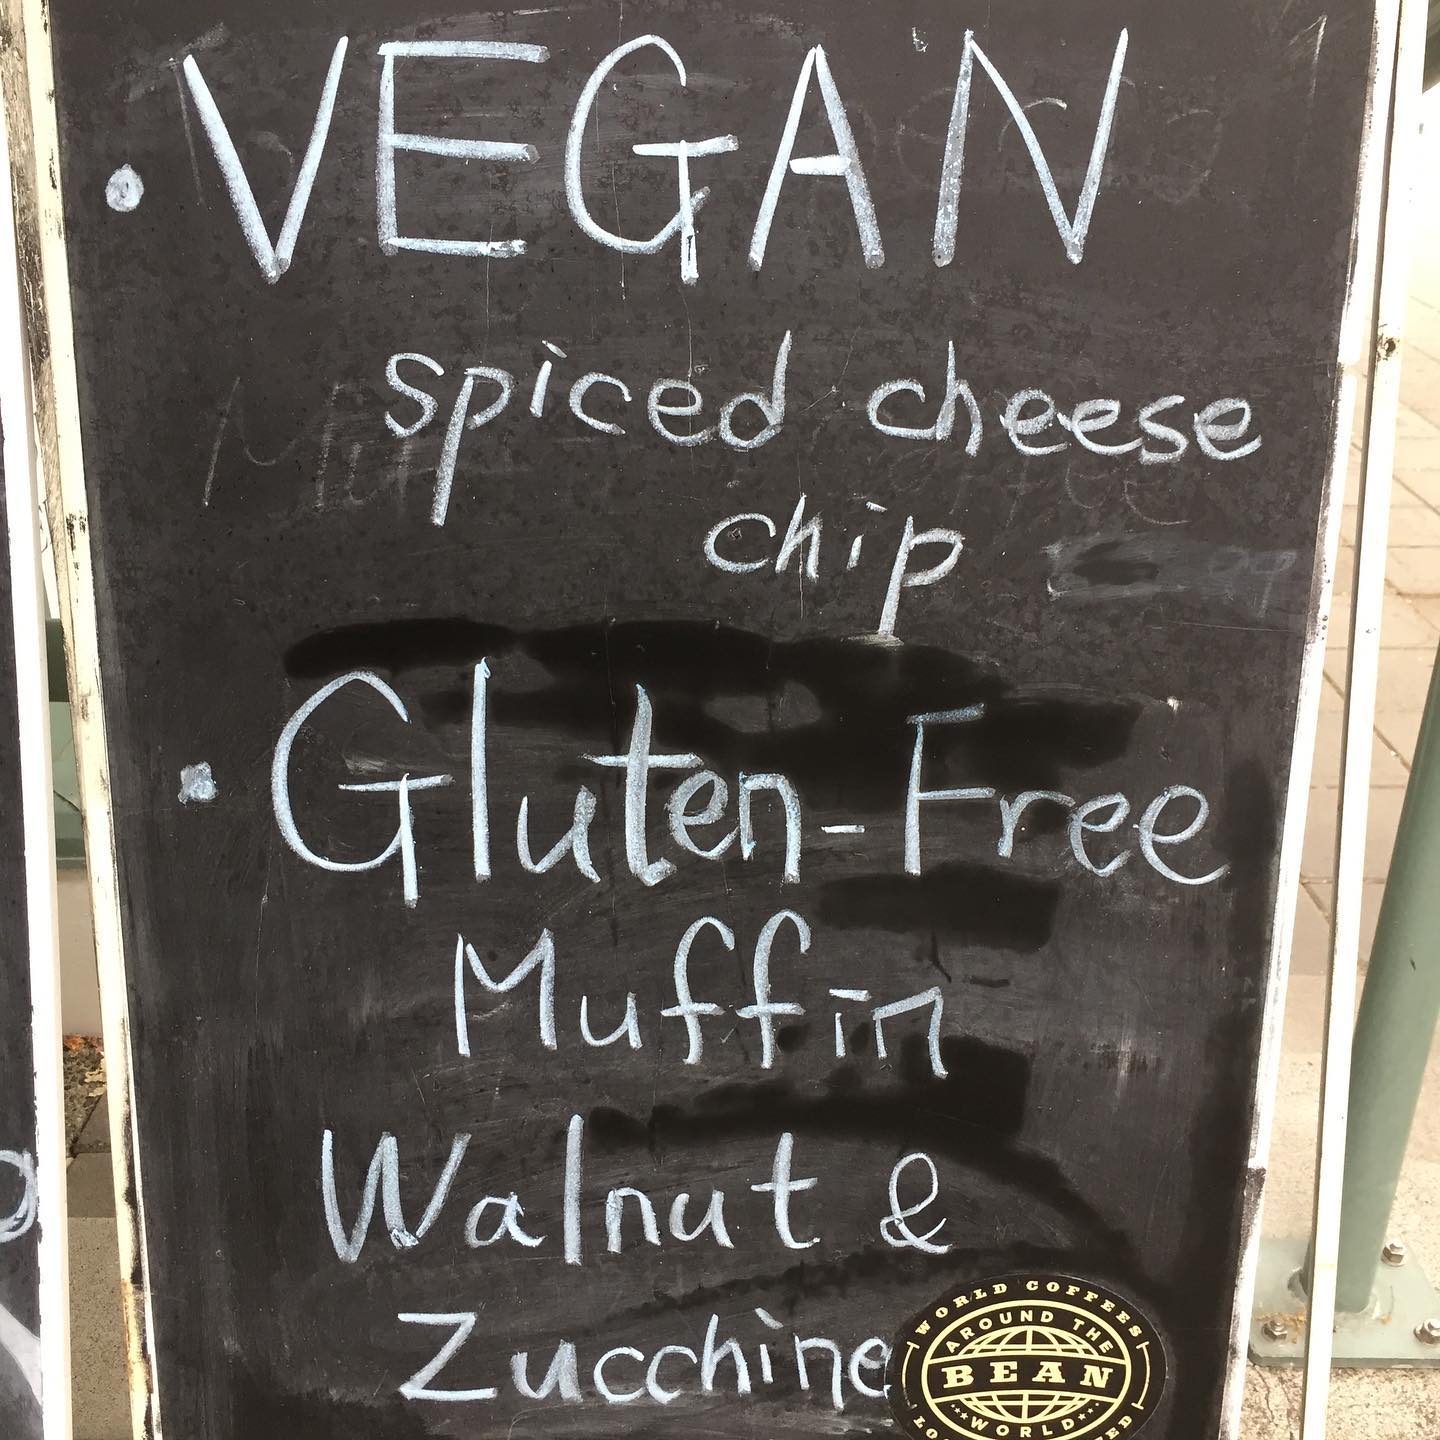 • VEGAN
spiced cheese
chip
• Gluten-Free
Muffin
Walnut &
Zucchine
WORLD COFFEES
AROUND THE
BEAN
WORLD